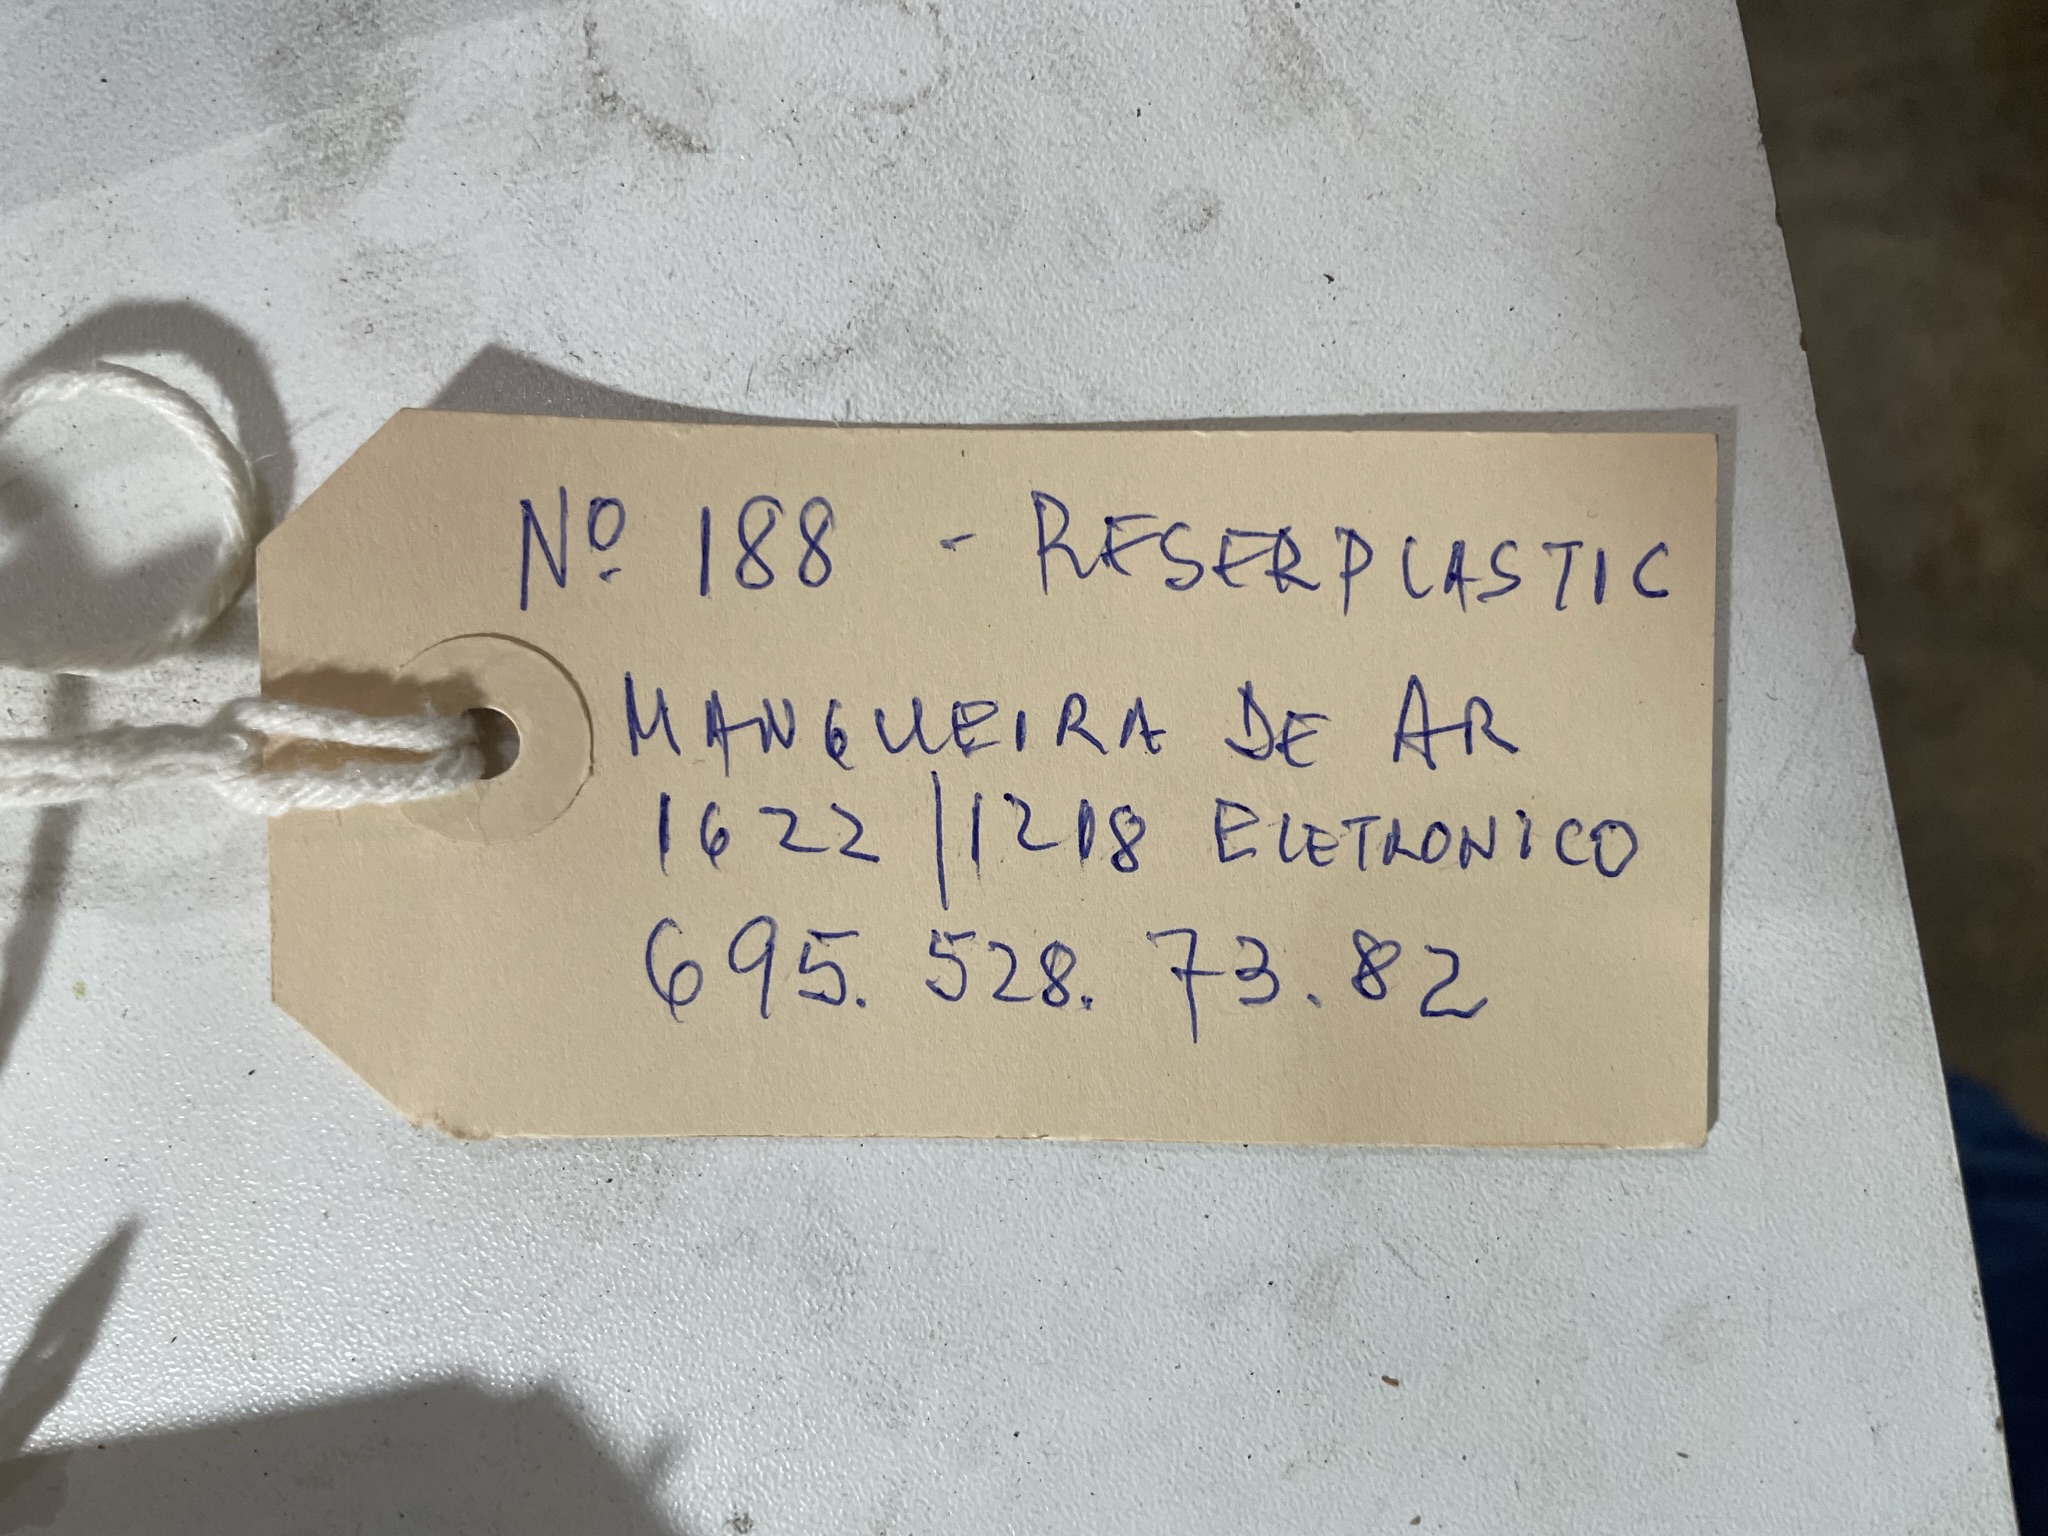 Nº 188 - RESERPLASTIC
MANGUEIRA DE AR
1622 | 1218 ELETRONICO
695. 528. 73. 82